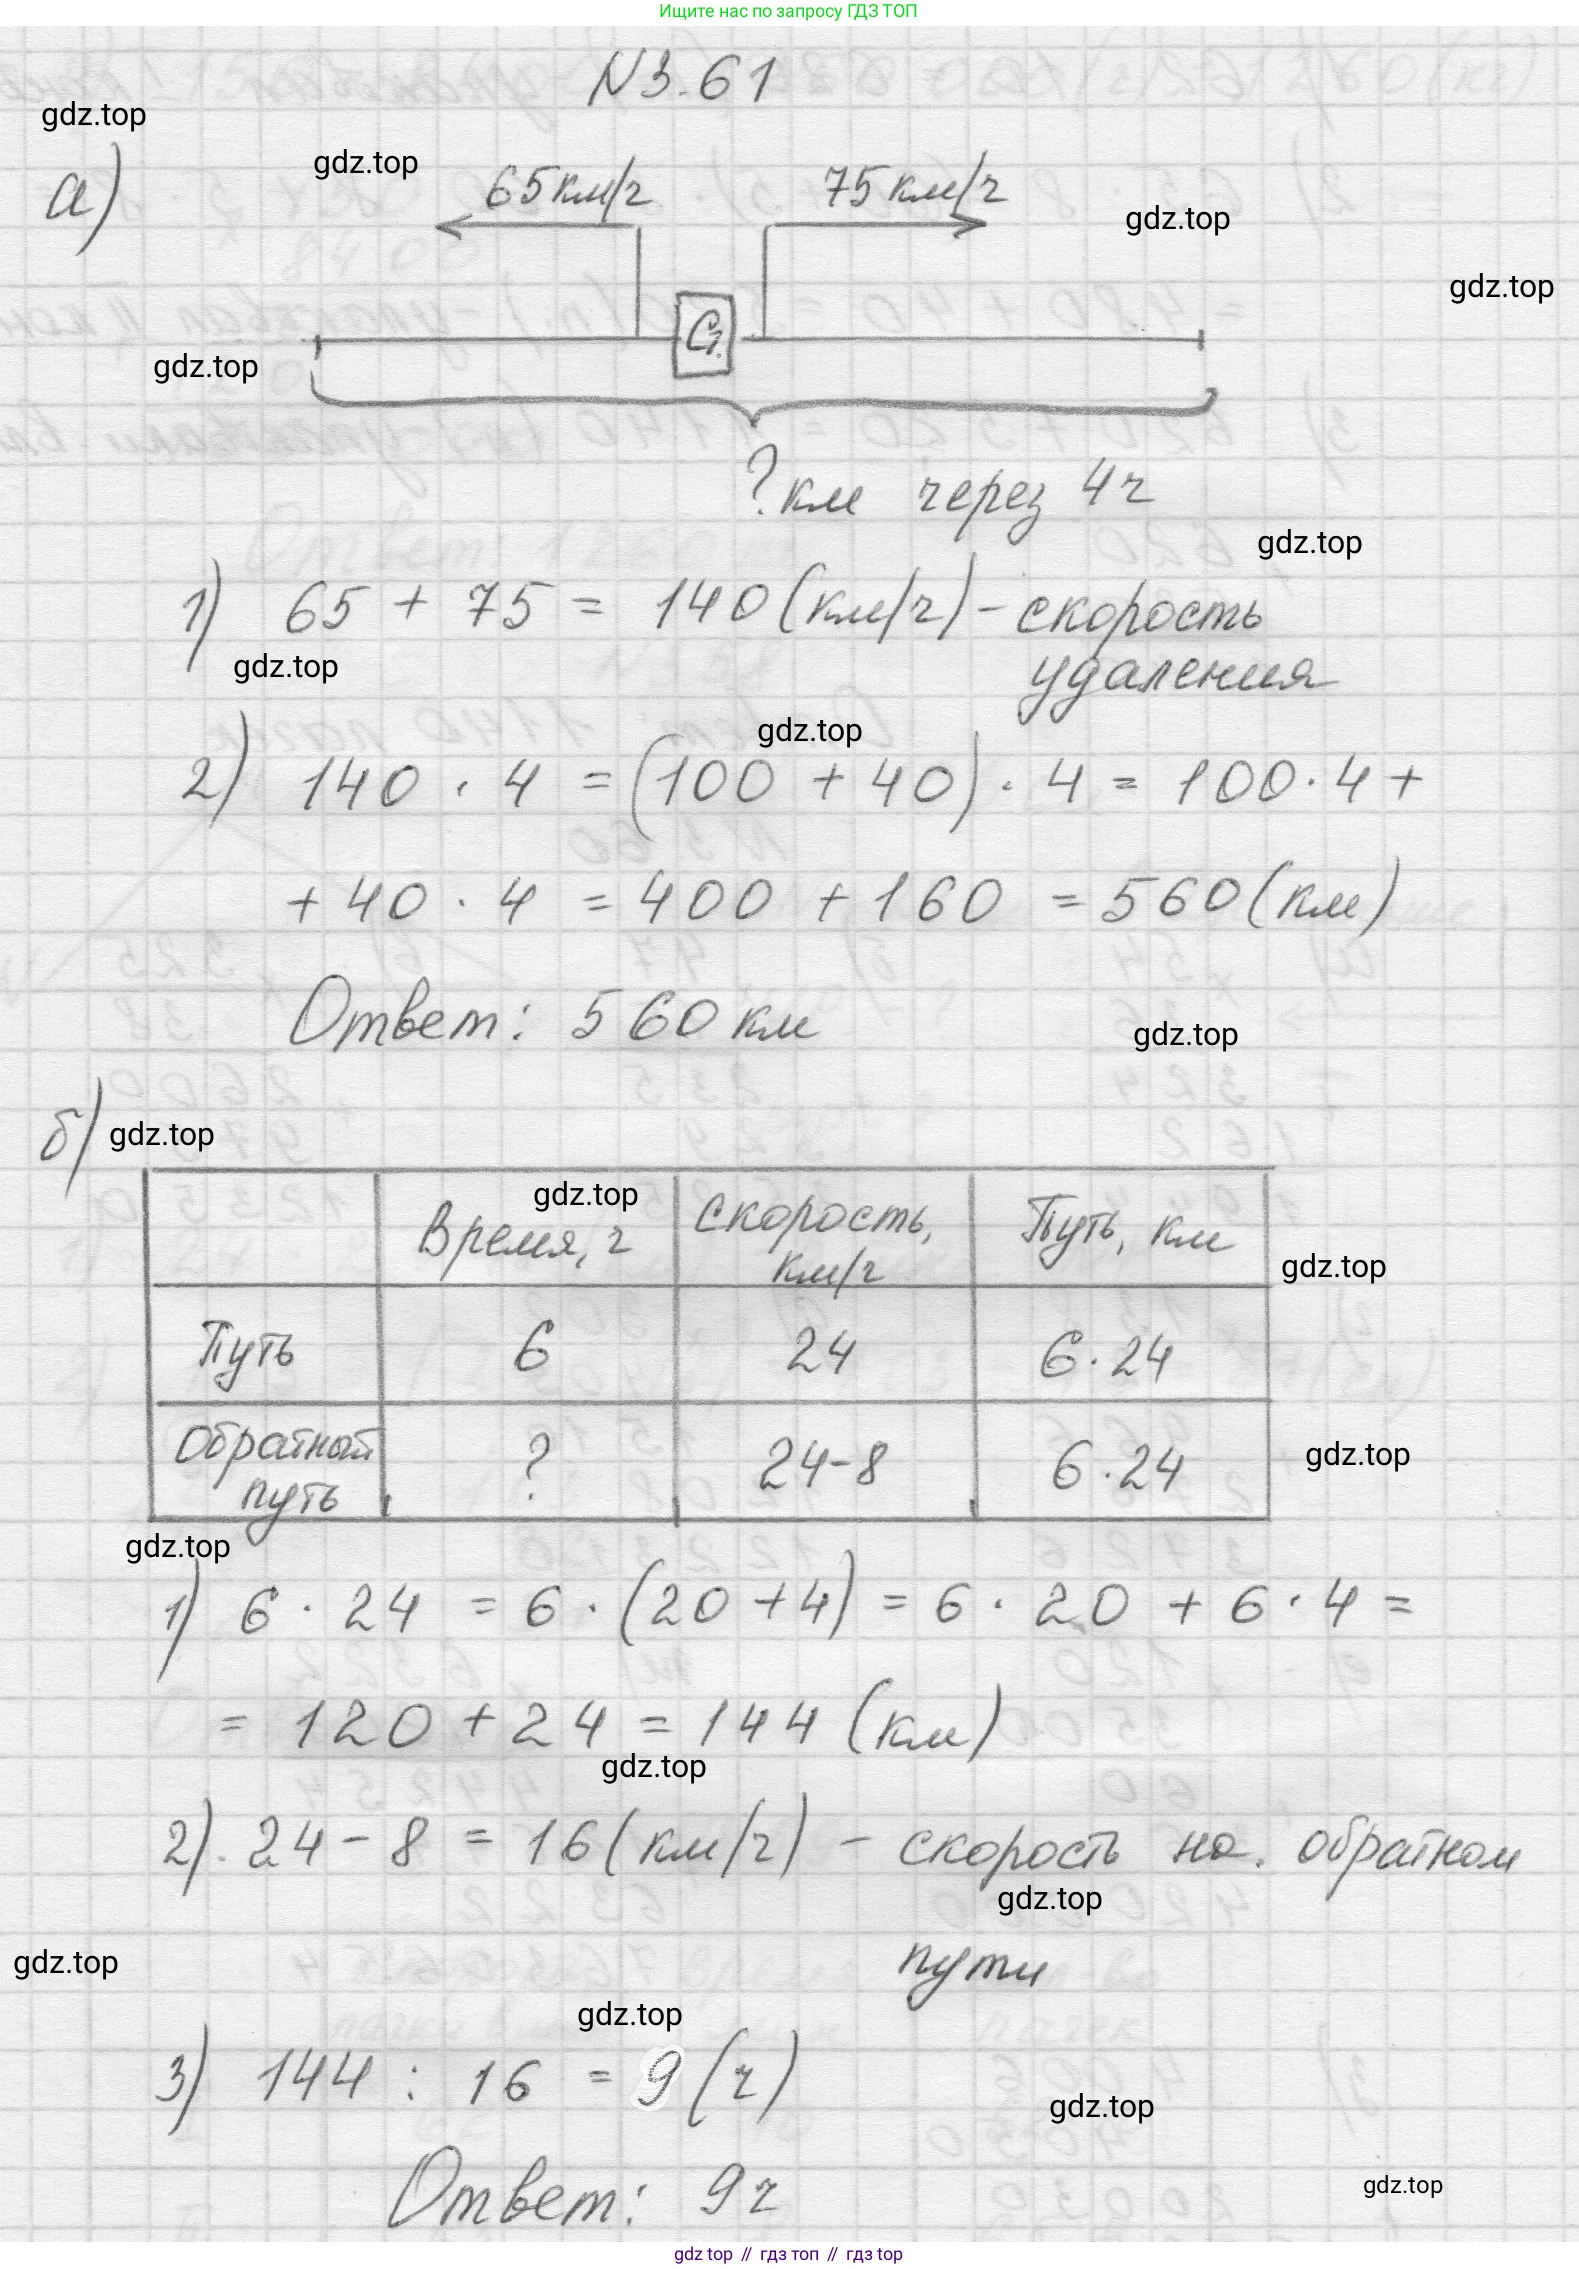 Ищите нас по запросу ГДЗ ТОП
N 3.61
gdz.top
а)
gdz.top
65 км/ч
75 км/ч
gdz.top
gdz.top
С.
gdz.top
? км через 4 ч
gdz.top
1) 65 + 75 = 140 (км/ч) - скорость
удаления
gdz.top
gdz.top
2) 140 · 4 = (100 + 40) · 4 = 100 · 4 +
+ 40 · 4 = 400 + 160 = 560 (км)
Ответ: 560 км
gdz.top
б)
gdz.top
gdz.top
Время, ч
Скорость,
км/ч
Путь, км
gdz.top
Путь
6
24
6 · 24
Обратный
путь
?
24-8
6 · 24
gdz.top
gdz.top
1) 6 · 24 = 6 · (20 + 4) = 6 · 20 + 6 · 4 =
= 120 + 24 = 144 (км)
gdz.top
2). 24 - 8 = 16 (км/ч) - скорость на. обратном
gdz.top
пути
gdz.top
gdz.top
3) 144 : 16 = 9 (ч)
gdz.top
Ответ: 9 ч
gdz.top
gdz top // гдз топ // гдз top